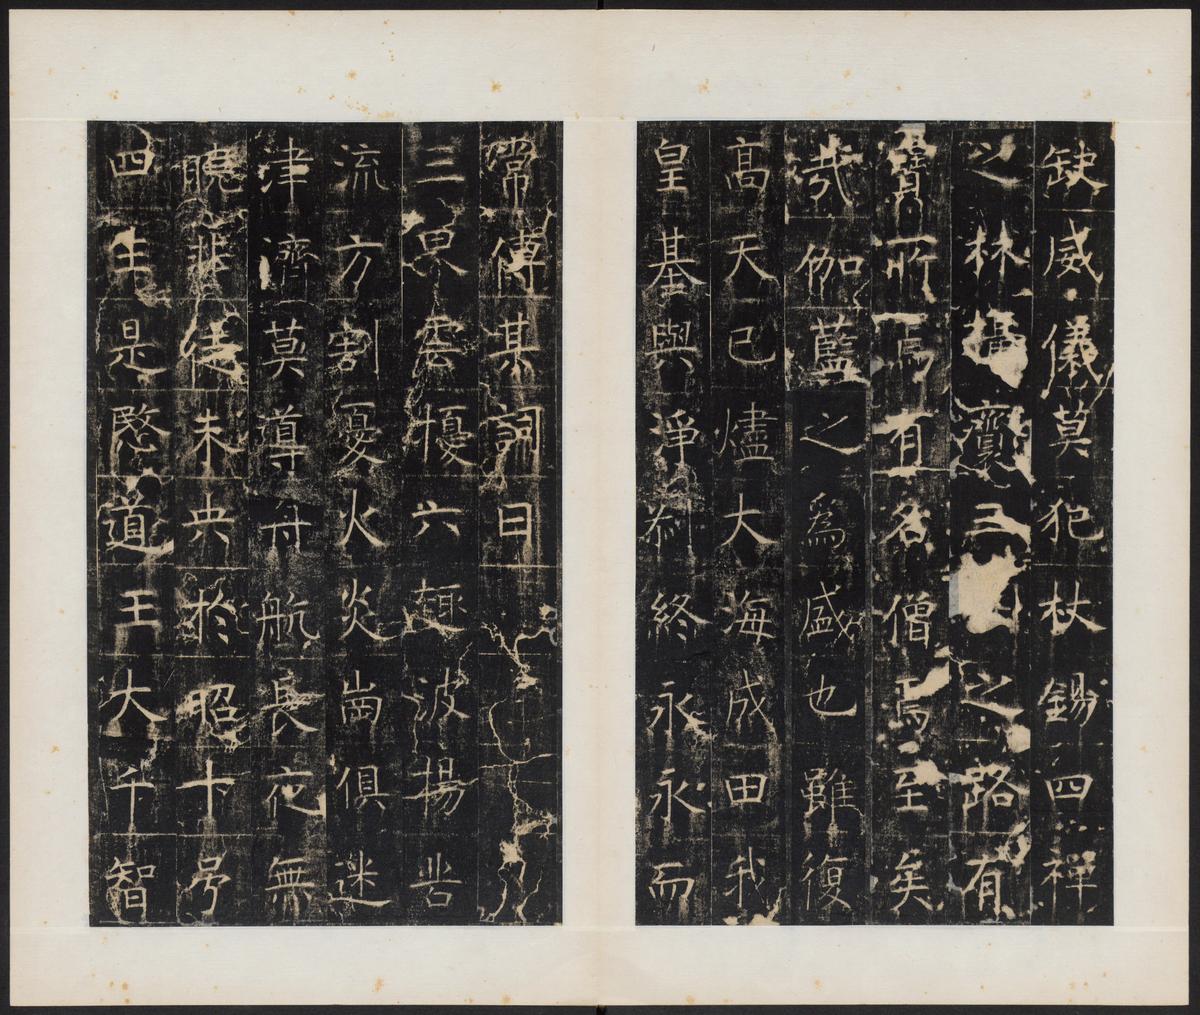 缺威儀莫犯杖錫四禪
之林攝齊三之路有
寶所焉有名僧焉至矣
哉伽藍之為盛也雖復
高天已燼大海成田我
皇基與淨剎終永永而
常傳其詞曰
三界雲擾六趣波揚苦
流方割憂火炎崗俱迷
津濟莫導舟航長夜無
曉悲徒未央於昭十号
四生是愍道王大千智